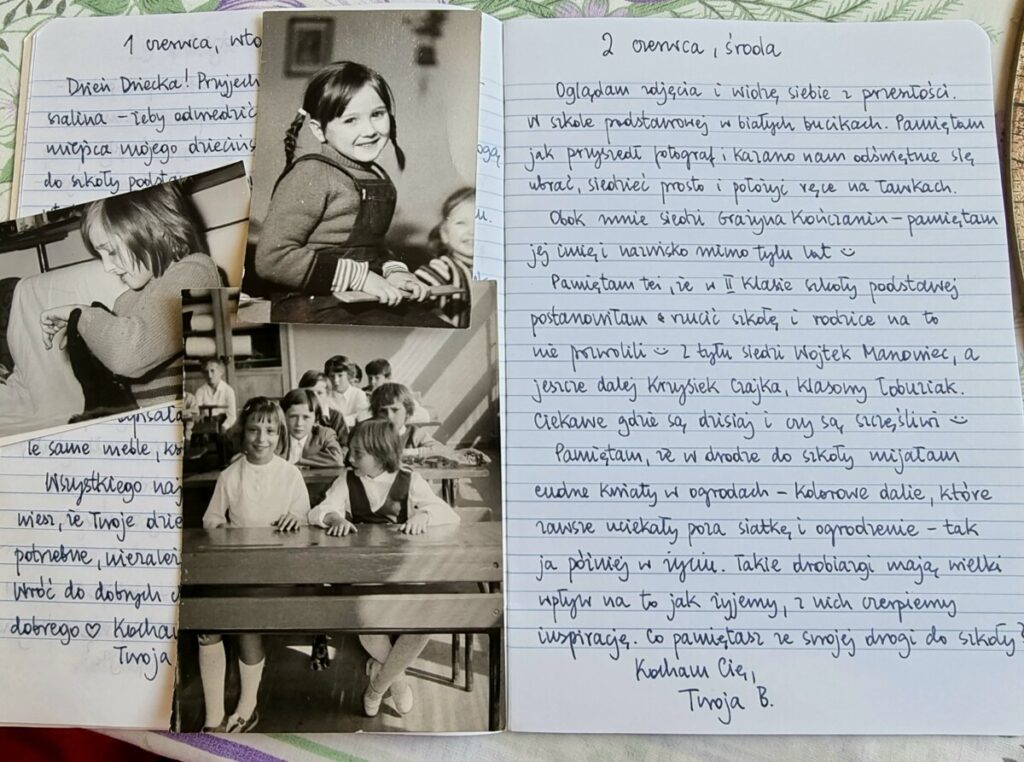 1 czerwca, wto
Dzień Dziecka! Przyjech
szalina - żeby odwiedzić
miejsca mojego dziecińs
ogą
do szkoły podsta
u.
wpisała
te same meble, kt
Wszystkiego naj
wiesz, że Twoje dzie
potrzebne, niezależ
wróć do dobrych c
dobrego ♡ Kocham
Twoja
2 czerwca, środa
Oglądam zdjęcia i widzę siebie z przeszłości.
W szkole podstawowej w białych bucikach. Pamiętam
jak przyszedł fotograf i kazano nam odświętnie się
ubrać, siedzieć prosto i położyć ręce na ławkach.
Obok mnie siedzi Grażyna Kończanin - pamiętam
jej imię i nazwisko mimo tylu lat ☺
Pamiętam też, że w II klasie szkoły podstawej
postanowiłam rzucić szkołę i rodzice na to
nie pozwolili ☺ Z tyłu siedzi Wojtek Manowiec, a
jeszcze dalej Krzysiek Czajka, klasowy łobuziak.
Ciekawe gdzie są dzisiaj i czy są szczęśliwi ☺
Pamiętam, że w drodze do szkoły mijałam
cudne kwiaty w ogrodach - kolorowe dalie, które
zawsze uciekały poza siatkę i ogrodzenie - tak
ja później w życiu. Takie drobiazgi mają wielki
wpływ na to jak żyjemy, z nich czerpiemy
inspirację. Co pamiętasz ze swojej drogi do szkoły?
Kocham Cię,
Twoja B.